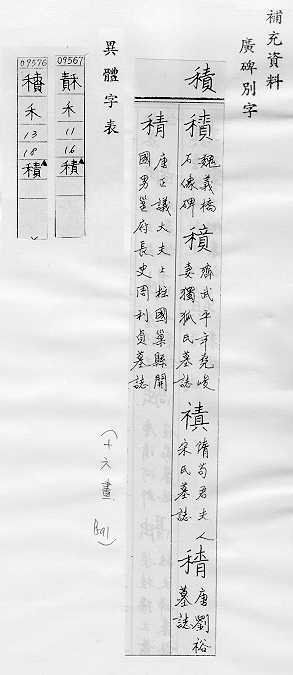 補充資料
廣碑別字
積
積 魏義橋
石像碑
積 齊武平年堯峻
妻獨孤氏墓誌
𥡯 隋苟君夫人
宋氏墓誌
唐劉裕
墓誌
唐正議大夫上柱國巢縣開
國男邕府長史周利貞墓
誌
(十六畫 P.591)
異體字表
09567
禾
11
16
積
09576
禾
13
18
積